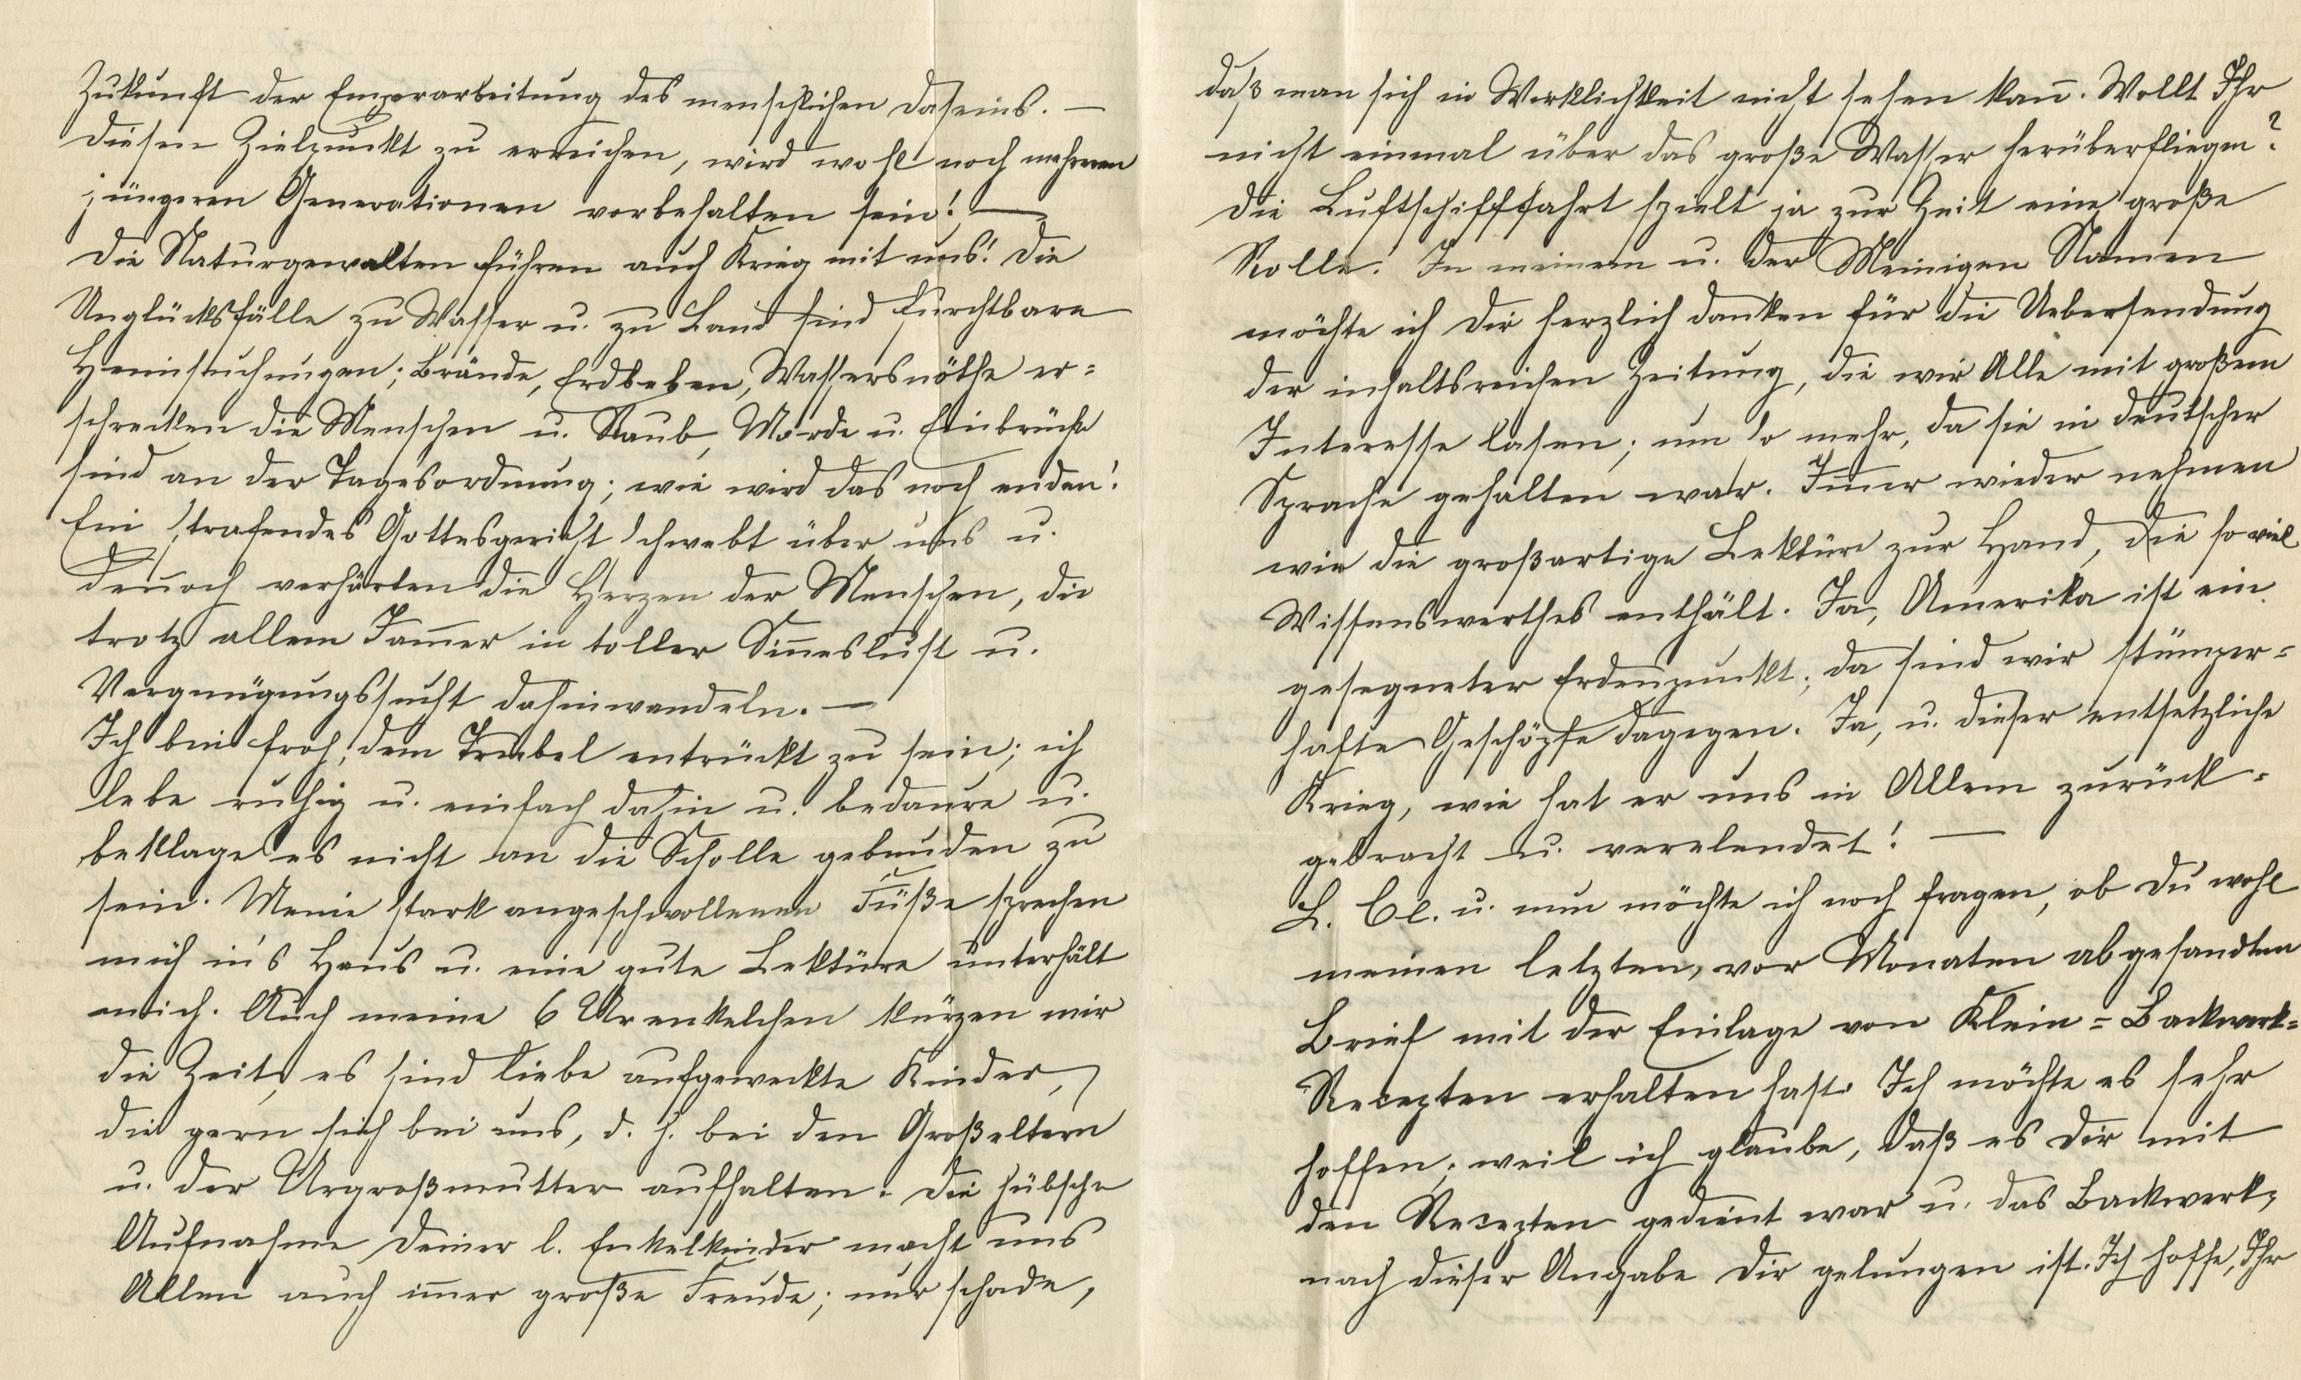 Zukunft der Emporarbeitung des menschlichen Daseins. —
Diesen Zielpunkt zu erreichen, wird wohl noch mehreren
jüngeren Generationen vorbehalten sein! —
Die Naturgewalten führen auch Krieg mit uns! Die
Unglücksfälle zu Wasser u. zu Land sind furchtbare
Heimsuchungen; Brände, Erdbeben, Wassersnöthe er=
schrecken die Menschen u. Raub, Morde u. Einbrüche
sind an der Tagesordnung; wie wird das noch enden!
Ein strafendes Gottesgericht schwebt über uns u.
deñoch verhärten die Herzen der Menschen, die
trotz allem Jam̄er in toller Siñeslust u.
Vergnügungssucht dahinwandeln. —
Ich bin froh, dem Trubel entrückt zu sein; ich
lebe ruhig u. einfach dahin u. bedaure u.
beklage es nicht an die Scholle gebunden zu
sein. Meine stark angeschwollenen Füße sprechen
mich in's Haus u. eine gute Lektüre unterhält
mich. Auch meine 6 Urenkelchen kürzen mir
die Zeit, es sind liebe aufgeweckte Kinder,
die gern sich bei uns, d. h. bei den Großeltern
u. der Urgroßmutter aufhalten. Die hübsche
Aufnahme Deiner l. Enkelkinder macht uns
Allen auch im̄er große Freude; nur schade,
daß man sich in Wirklichkeit nicht sehen kañ. Wollt Ihr
nicht einmal über das große Wasser herüberfliegen?
Die Luftschifffahrt spielt ja zur Zeit eine große
Rolle! In meinem u. der Meinigen Namen
möchte ich Dir herzlich danken für die Uebersendung
der inhaltsreichen Zeitung, die wir Alle mit großem
Interesse lasen; um so mehr, da sie in deutscher
Sprache gehalten war. Im̄er wieder nehmen
wir die großartige Lektüre zur Hand, die so viel
Wissenswerthes enthält. Ja, Amerika ist ein
gesegneter Erdenpunkt; da sind wir stümper=
hafte Geschöpfe dagegen. Ja, u. dieser entsetzliche
Krieg, wie hat er uns in Allem zurück=
gebracht u. verelendet! —
L. Cl. u. nun möchte ich noch fragen, ob Du wohl
meinen letzten, vor Monaten abgesandten
Brief mit der Einlage von Klein=Backwerk=
Recepten erhalten hast. Ich möchte es sehr
hoffen; weil ich glaube, daß es Dir mit
den Recepten gedient war u. das Backwerk,
nach dieser Angabe Dir gelungen ist. Ich hoffe, Ihr